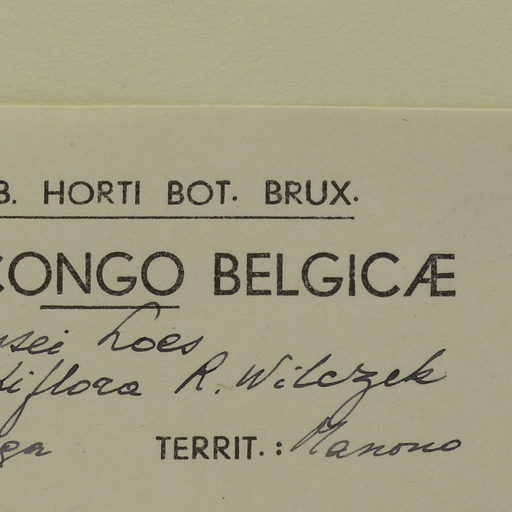 B. HORTI BOT. BRUX.
CONGO BELGICÆ
sei Loes
diflora R. Wilczek
ga TERRIT.: Manono